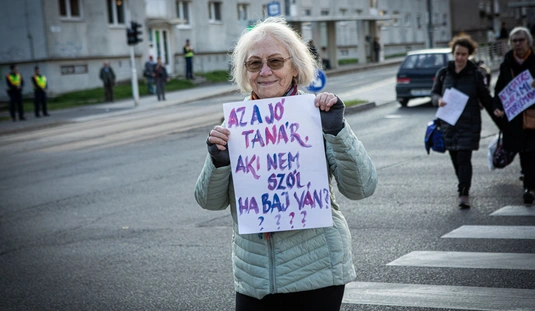 AZ A JÓ
TANÁR,
AKI NEM
SZÓL,
HA BAJ VAN?
? ? ? ?